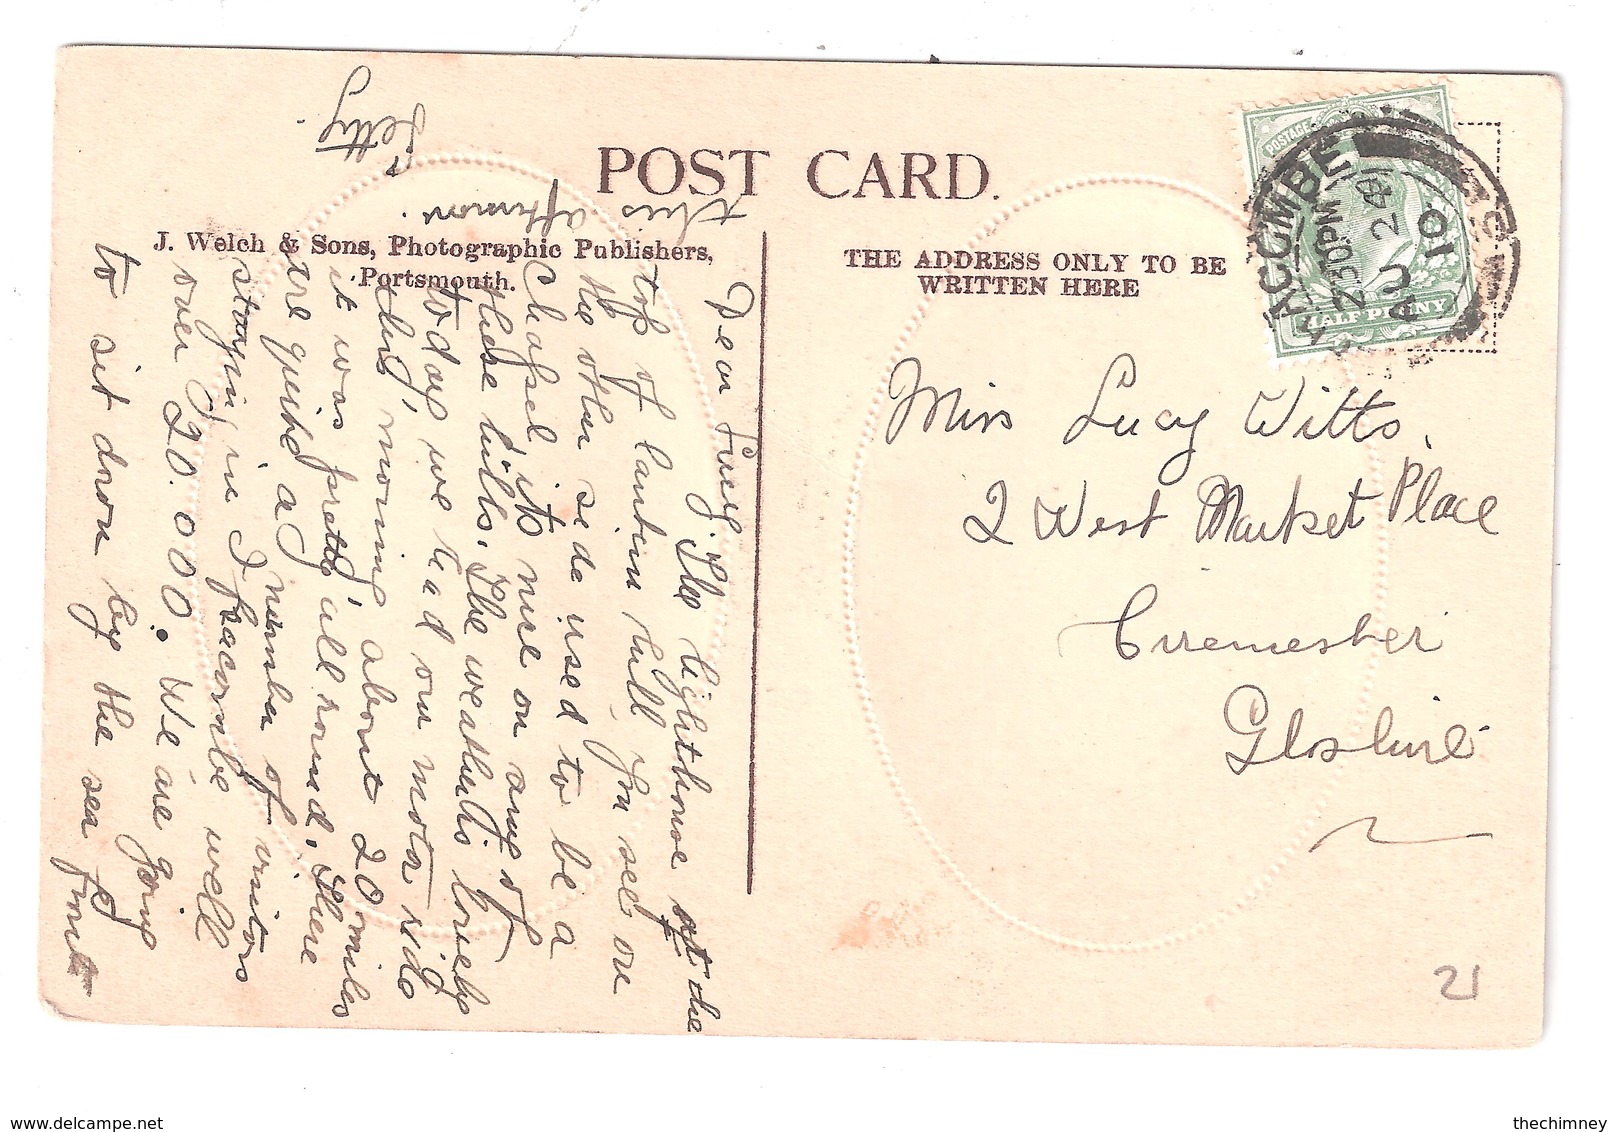 POST CARD.
J. Welch & Sons, Photographic Publishers,
Portsmouth.
THE ADDRESS ONLY TO BE
WRITTEN HERE
POSTAGE
HALF PENNY
2.30PM
AU 24
10
Miss Lucy Witts,
2 West Market Place
Cirrencester
Gloshire
Dear Lucy. The lighthouse at the
top of lantern hill you see on
the other side used to be a
chapel, its nice on any of
these hills. The weather is lovely
today we had our motor ride
this morning about 20 miles
it was pretty all round. There
are quite a number of visitors
staying in Ilfracombe well
over 20.000. We are going
to sit down by the sea front
this
afternoon.
Letty.
21
thechimney